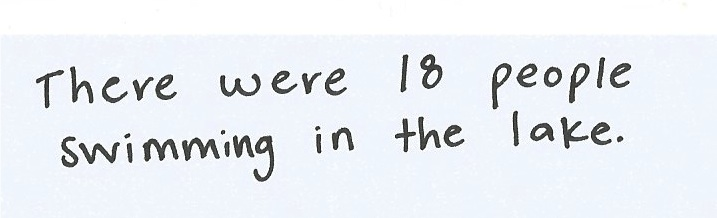 There were 18 people
swimming in the lake.